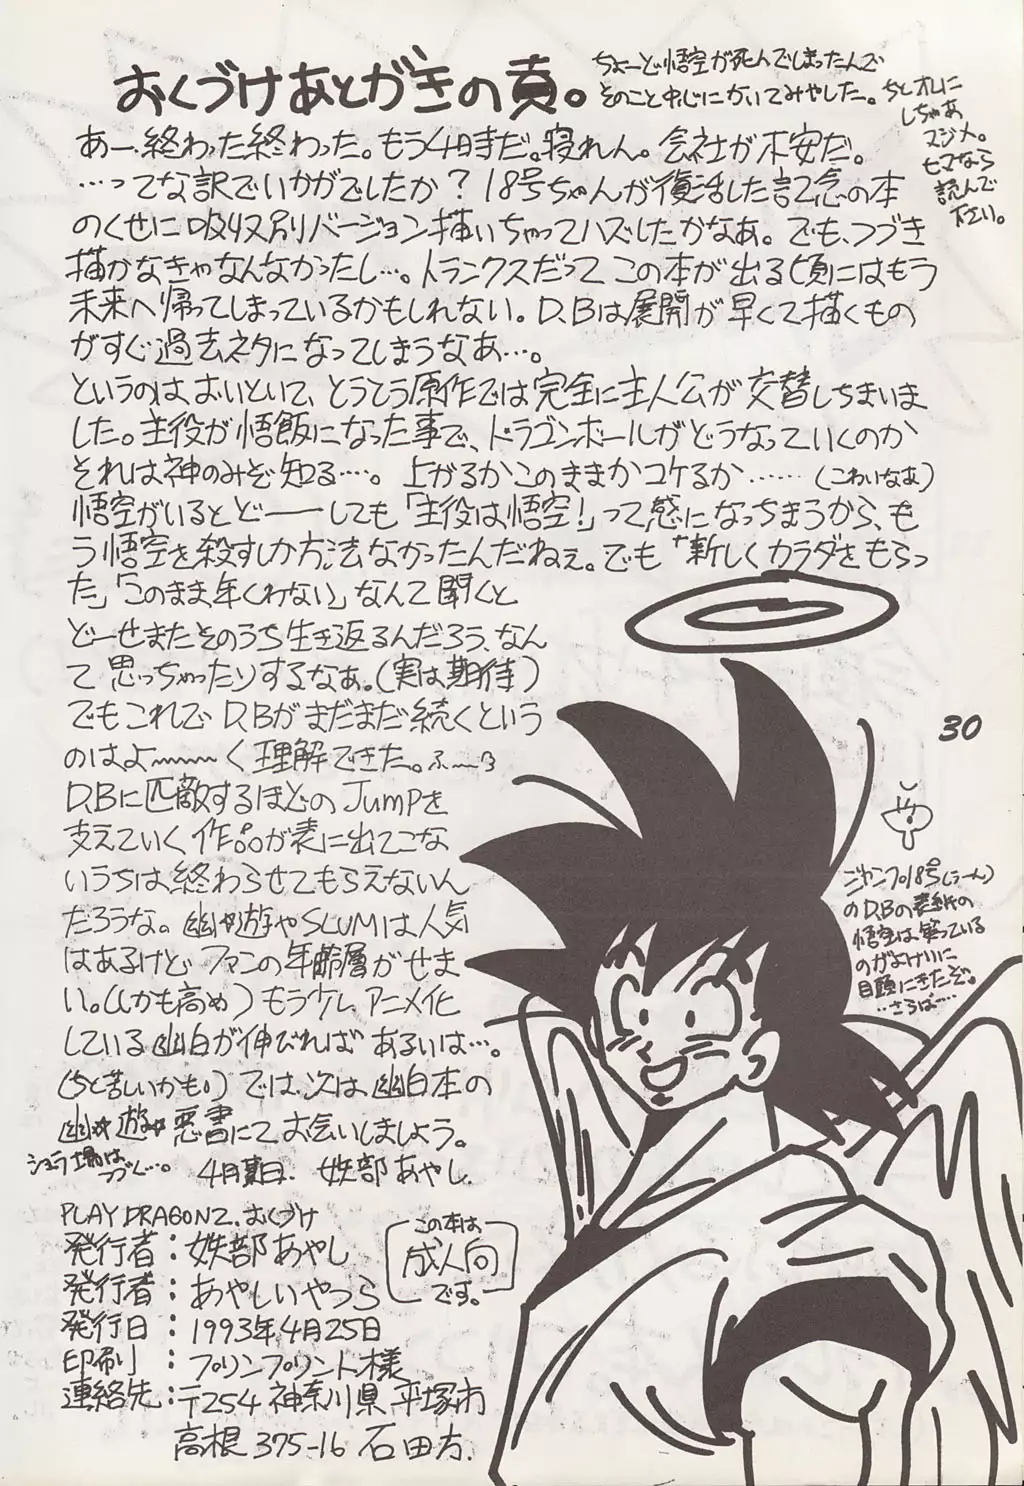 おくづけあとがきの頁。
ちょーどど悟空が死んでしまったんで
そのこと中心にかいてみやした。
ちとオレに
しちゃあ
マジメ。
ヒマなら
読んで
下さい。
あー、終わった終わった。もう4時だ。寝れん。会社が不安だ。
…ってな訳でいかがでしたか？18号ちゃんが復活した記念の本
のくせに吸収別バージョン描いちゃってハズしたかなあ。でも、つづき
描かなきゃなんなかったし…。トランクスだってこの本が出る頃にはもう
未来へ帰ってしまっているかもしれない。D.Bは展開が早くて描くもの
がすぐ過去ネタになってしまうなあ…。
というのはおいといて、とうとう原作では完全に主人公が交替しちまいま
した。主役が悟飯になった事で、ドラゴンボールがどうなっていくのか
それは神のみぞ知る…。上がるかこのままかコケるか……（こわいなあ）
悟空がいるとど――しても「主役は悟空！」って感になっちまうから、も
う悟空を殺すしか方法なかったんだねぇ。でも“新しくカラダをもらっ
た」「このまま年くわない」なんて聞くと
どーせまたそのうち生き返るんだろう、なん
て思っちゃったりするなぁ。（実は期待）
でもこれでD.Bがまだまだ続くという
のはよ〜〜〜く理解できた。ふーう
D.Bに匹敵するほどのJUMPを
支えていく作品が表に出てこな
いうちは終わらせてもらえないん
だろうな。幽☆遊やSLUMは人気
はあるけど ファンの年齢層がせま
い。（しかも高め）もう少しアニメ化
している幽白が伸びればあるいは…。
（ちと苦しいかも。）では、次は幽白本の
幽☆遊☆悪書にてお会いしましょう。
シュラ場は
つづく…。
4月某日．妖部あやし．
30
ジャンプ18号（うーん）
のD.Bの表紙の
悟空は笑っている
のがよけいに
目頭にきたぞ。
…さらば…
PLAY DRAGON2．おくづけ
発行者：妖部あやし
発行者：あやしいやつら
発行日：1993年4月25日
印刷　：プリンプリント様
連絡先：〒254 神奈川県平塚市
高根375-16 石田方．
この本は
成人向
です。